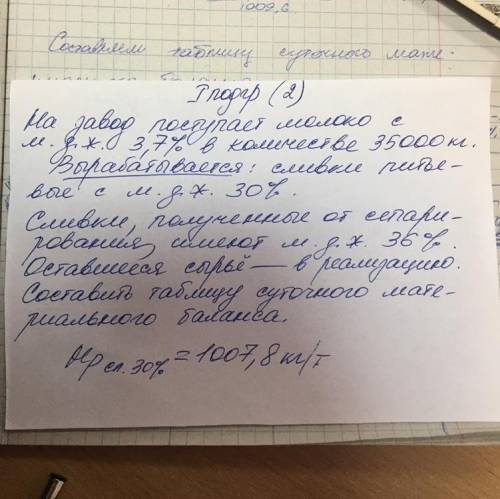 1009,6
Составляем таблицу суточного мате-
I подгр (2)
На завод поступает молоко с
м.д.ж. 3,7% в количестве 35000 кг.
Вырабатывается: сливки питье-
вые с м.д.ж. 30%.
Сливки, полученные от сепари-
рования, имеют м.д.ж. 36%.
Оставшееся сырьё — в реализацию.
Составить таблицу суточного мате-
риального баланса.
Нр сл.30% = 1007,8 кг/т